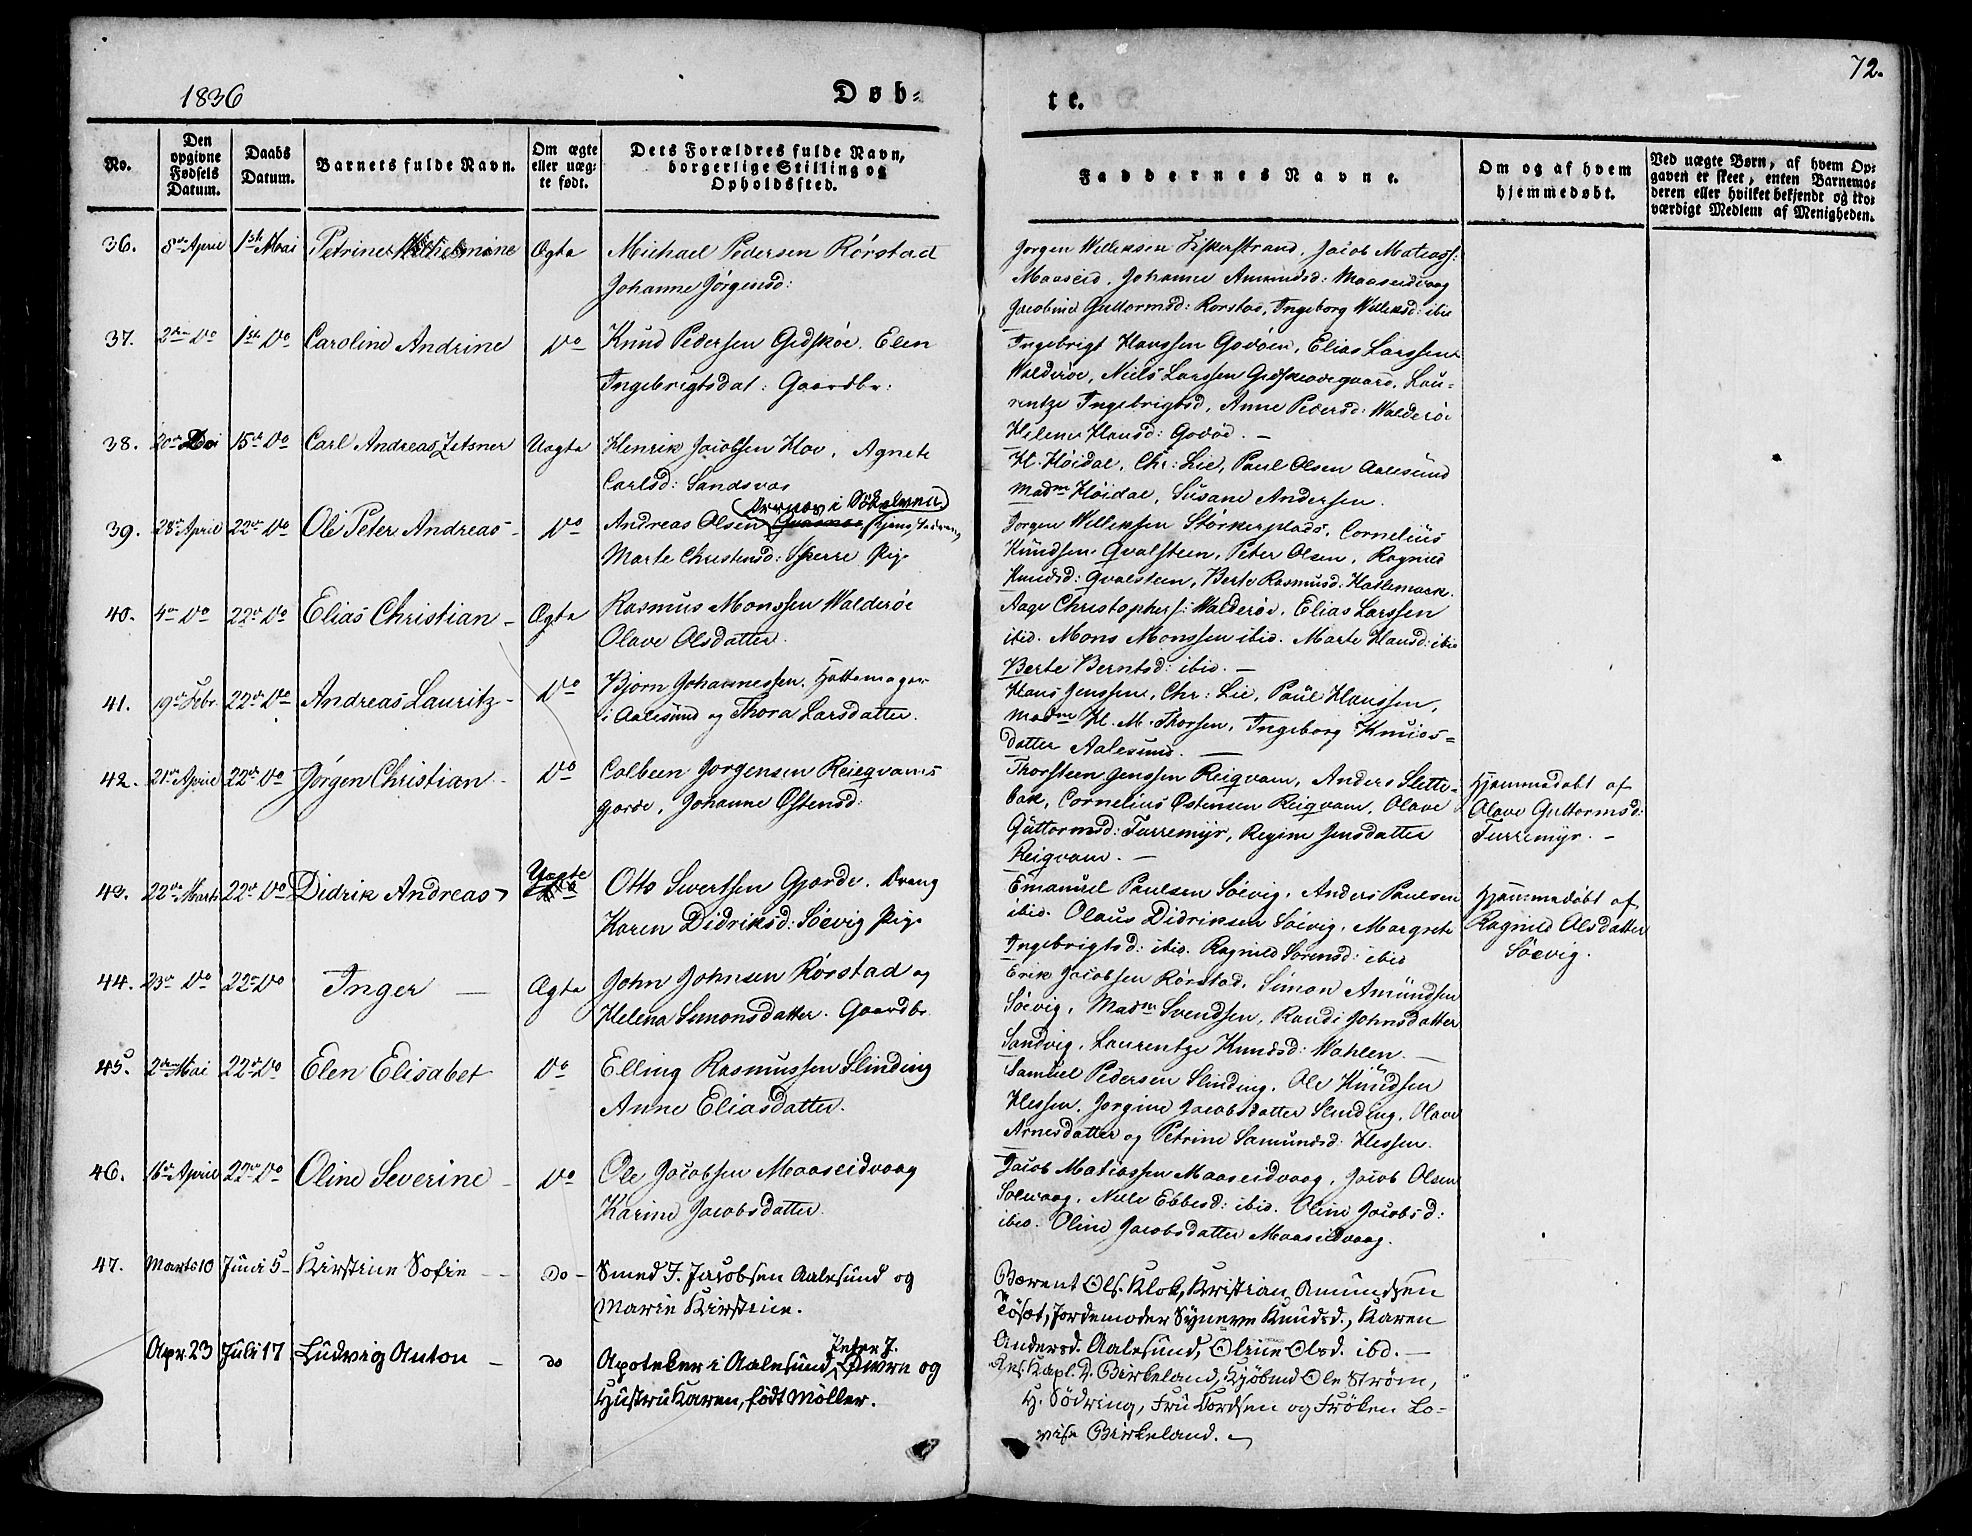 1836
Døb-
te.
72.
No.
Den opgivne Fødsels Datum.
Daabs Datum.
Barnets fulde Navn.
Om ægte eller uægte født.
Dets Forældres fulde Navn, borgerlige Stilling og Opholdssted.
Faddernes Navne.
Om og af hvem hjemmedøbt.
Ved uægte Børn, af hvem Opgaven er skeet, enten Barnemoderen eller hvilket bekjendt og troværdigt Medlem af Menigheden.
36. 8de April 1ste Mai Petrine Willielmine Ægte Michael Pedersen Rörstad
Johanne Jörgensd:
Jörgen Willeksen Fiskerstrand, Jacob Matiass:
Maaseid, Johanne Amundsd: Maaseidvaag
Jacobine Guttormsd: Rorstad, Ingeborg Willeksd: ibid
37. 2den Do 1ste Do Caroline Andrine Do Knud Pedersen Gidskøe. Elen
Ingebrigtsdat: Gaardbr:
Ingebrigt Hanssen Godöen, Elias Larssen
Walderöe, Niels Larssen Gidskeodegaard, Lau-
rentze Ingebrigtsd, Anne Pedersd: Walderöe
Helene Hansd: Godöe. —
38. 15de Do Carl Andreas Zetsner Uægte Henrik Jacobsen Hov, Agnete
Carlsd: Sandsvas
H. Höidal, Chr: Lie, Paul Olsen Aalesund
Madm Höidal, Susane Andersen.
39. 28de April 22de Do Ole Peter Andreas - Do Andreas Olsen
Marte Christensd: Skerre Pige
Jörgen Willeksen Storkerplads, Cornelius
Knudsen Qvalsteen, Peter Olsen, Ragnild
Knudsd: Qvalsteen, Berte Rasmusd. Hatlemark.
40. 4de Do 22de Do Elias Christian - Ægte Rasmus Monssen Walderöe
Olave Olsdatter.
Aage Christophers: Walderöe, Elias Larssen
ibid. Mons Monssen ibid. Marte Hansd: ibid
Berte Berntsd: ibid. —
41. 19de Febr 22de Do Andreas Lauritz - Do Bjorn Johannessen. Hattemager
i Aalesund og Thora Larsdatter.
Hans Jenssen, Chr: Lie, Paul Hanssen,
Madm H. M. Thorsen, Ingeborg Knuds-
datter Aalesund. —
42. 21de April 22de Do Jörgen Christian - Do Colbeen Jorgensen Reiqvams
gjerde, Johanne Östensd:
Thorsteen Jenssen Reiqvam, Anders Slette-
bak, Cornelius Östensen Reiqvam, Olave
Guttormsd: Turremyr, Regine Jensdatter
Reiqvam. —
Hjemmedøbt af
Olave Guttormsd:
Turremyr. -
43. 22de Marts 22de Do Didrik Andreas Uægte Otto Sivertsen Gjerde. Dreng
Karen Didriksd: Söevig Pige
Emanuel Paulsen Söevig, Anders Paulsen
ibid. Olaus Didriksen Söevig, Margrete
Ingebrigtsd: ibid. Ragnild Sörensd: ibid
Hjemmedøbt af
Ragnild Olsdatter
Söevig.
44. 23de Do 22de Do Inger — Ægte John Johnsen Rörstad og
Helena Simonsdatter. Gaardbr.
Erik Jacobsen Rörstad, Simon Amundsen
Söevig, Madm Svendsen, Randi Johnsdatter
Sandvig, Laurentze Knudsd: Wahlen. —
45. 2den Mai 22de Do Elen Elisabet Do Elling Rasmussen Slinding
Anne Eliasdatter.
Samuel Pedersen Slinding. Ole Knudsen
Hessen. Jorgine Jacobsdatter Slinding, Olave
Arnesdatter og Petrine Samundsd: Hessen.
46. 16de April 22de Do Oline Severine - Do Ole Jacobsen Maaseidvaag
Karine Jacobsdatter.
Jacob Matiassen Maaseidvaag, Jacob Olsen
Solevaag, Nille Ebbesd: ibid. Oline Jacobsd:
ibid. Oline Jacobsdatter Maaseidvaag.
47. Marts 10 Juni 5 - Kirstine Sofie - - Do - Smed J. Jacobsen Aalesund og
Marie Kirstine.
Bærent Ols. Klok, Kristian Amundsen
Tösæt, Jordemoder Synneve Knudsd., Karen
Andersd. Aalesund, Oline Olsd. ibd. —
Apr. 23 Juli 17 Ludvig Anton - do Apoteker i Aalesund, Peter J. og
Hustru Karen, født Möller.
Res. Kapl. D. Birkeland, Kjöbmd Ole Ström,
H. Södring, Fru Tordsen og Fröken Lo-
vise Birkeland. —